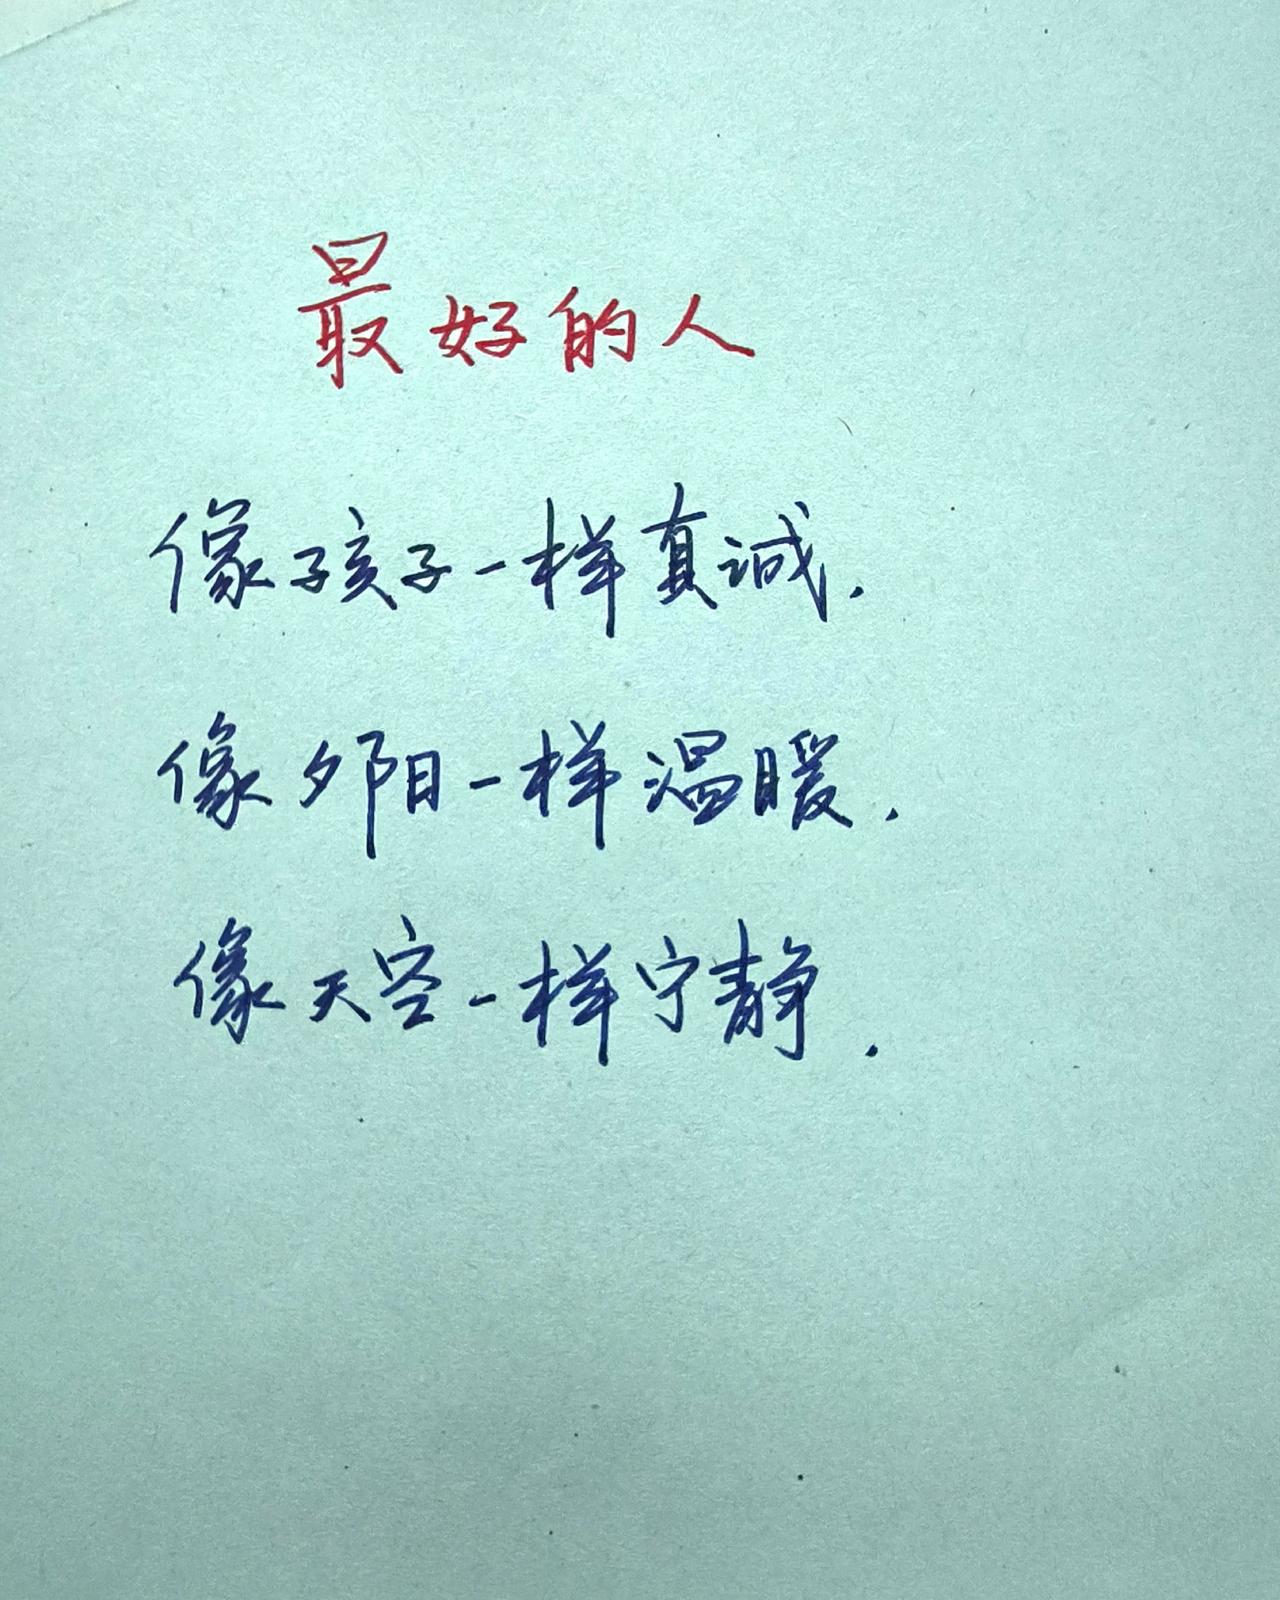 最好的人
像孩子一样真诚.
像夕阳一样温暖.
像天空一样宁静.